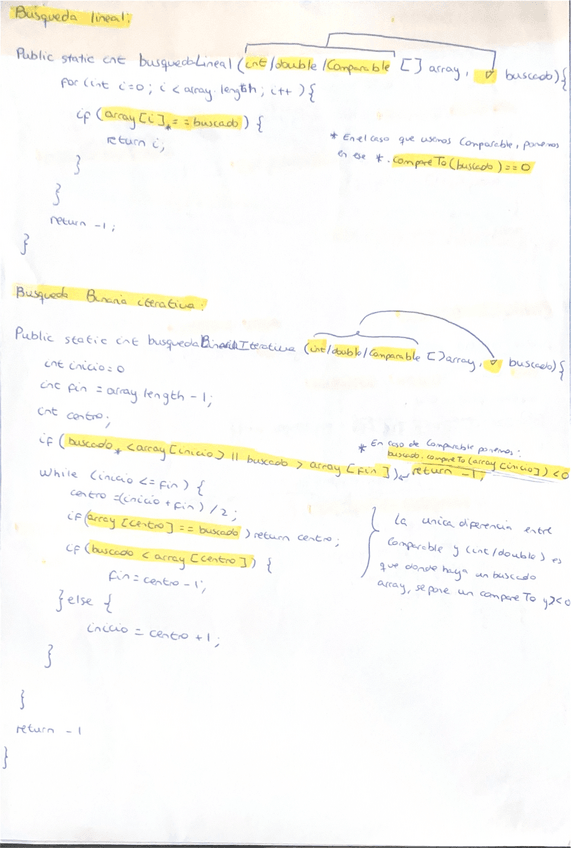 Búsqueda lineal:
Public static int busquedaLineal (int/double/Comparable [] array, buscado){
for (int i=0; i < array.length; i++){
if (array[i]* == buscado) {
return i;
}
* En el caso que usemos Comparable, ponemos
en ese *. compareTo(buscado) == 0
}
return -1;
}
Busqueda Binaria iterativa:
Public static int busquedaBinariaIterativa (int/double/Comparable []array, buscado){
int inicio=0
int fin = array length - 1;
int centro;
if (buscado* < array[inicio] || buscado > array[fin]) return -1;
* En caso de Comparable ponemos:
buscado.compareTo(array[inicio]) < 0
while (inicio <= fin) {
centro =(inicio + fin) / 2;
if(array[centro] == buscado) return centro;
if (buscado < array[centro]) {
fin = centro - 1;
} else {
inicio = centro + 1;
}
La unica diferencia entre
Comparable y (int/double) es
que donde haya un buscado
array, se pone un compareTo y)<0
}
return -1
}